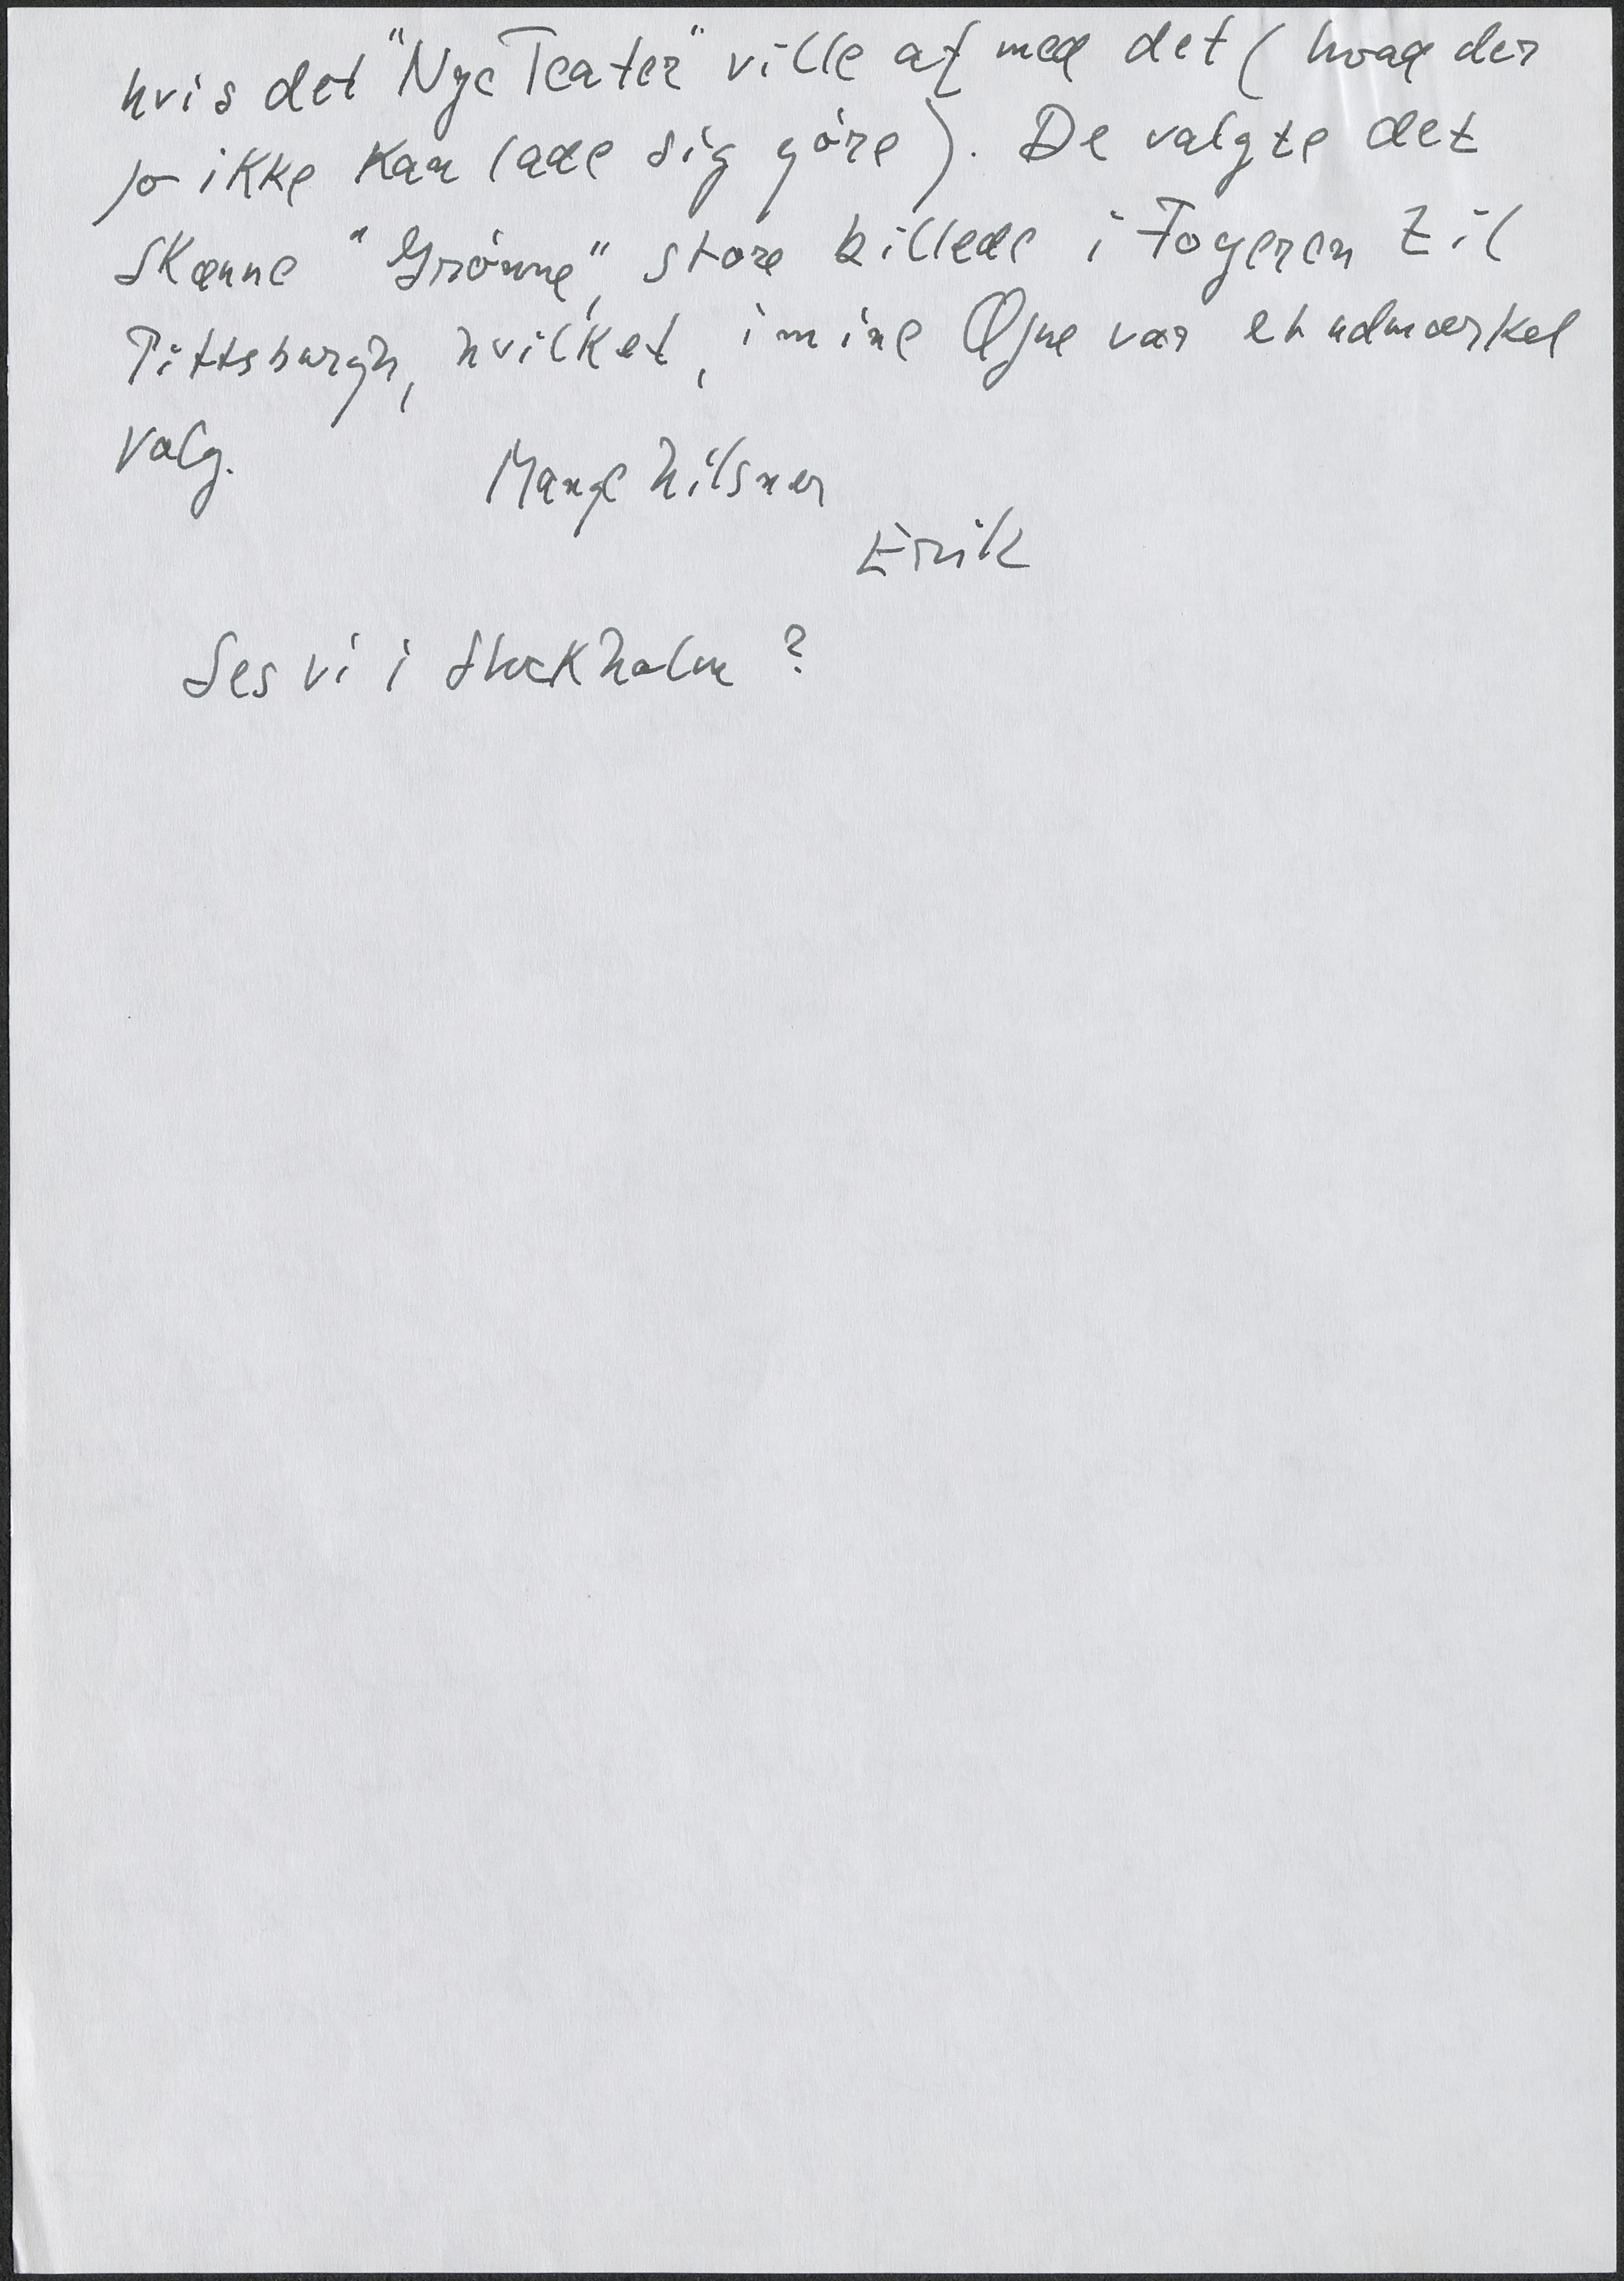 hvis det "Nye Teater" ville af med det (hvad der
jo ikke kan lade sig göre). De valgte det
skønne "Grönne", store billede i Foyeren til
Pittsburgh, hvilket, i mine Øjne var et udmærket
Valg.
Mange hilsner
Erik
Ses vi i Stockholm?